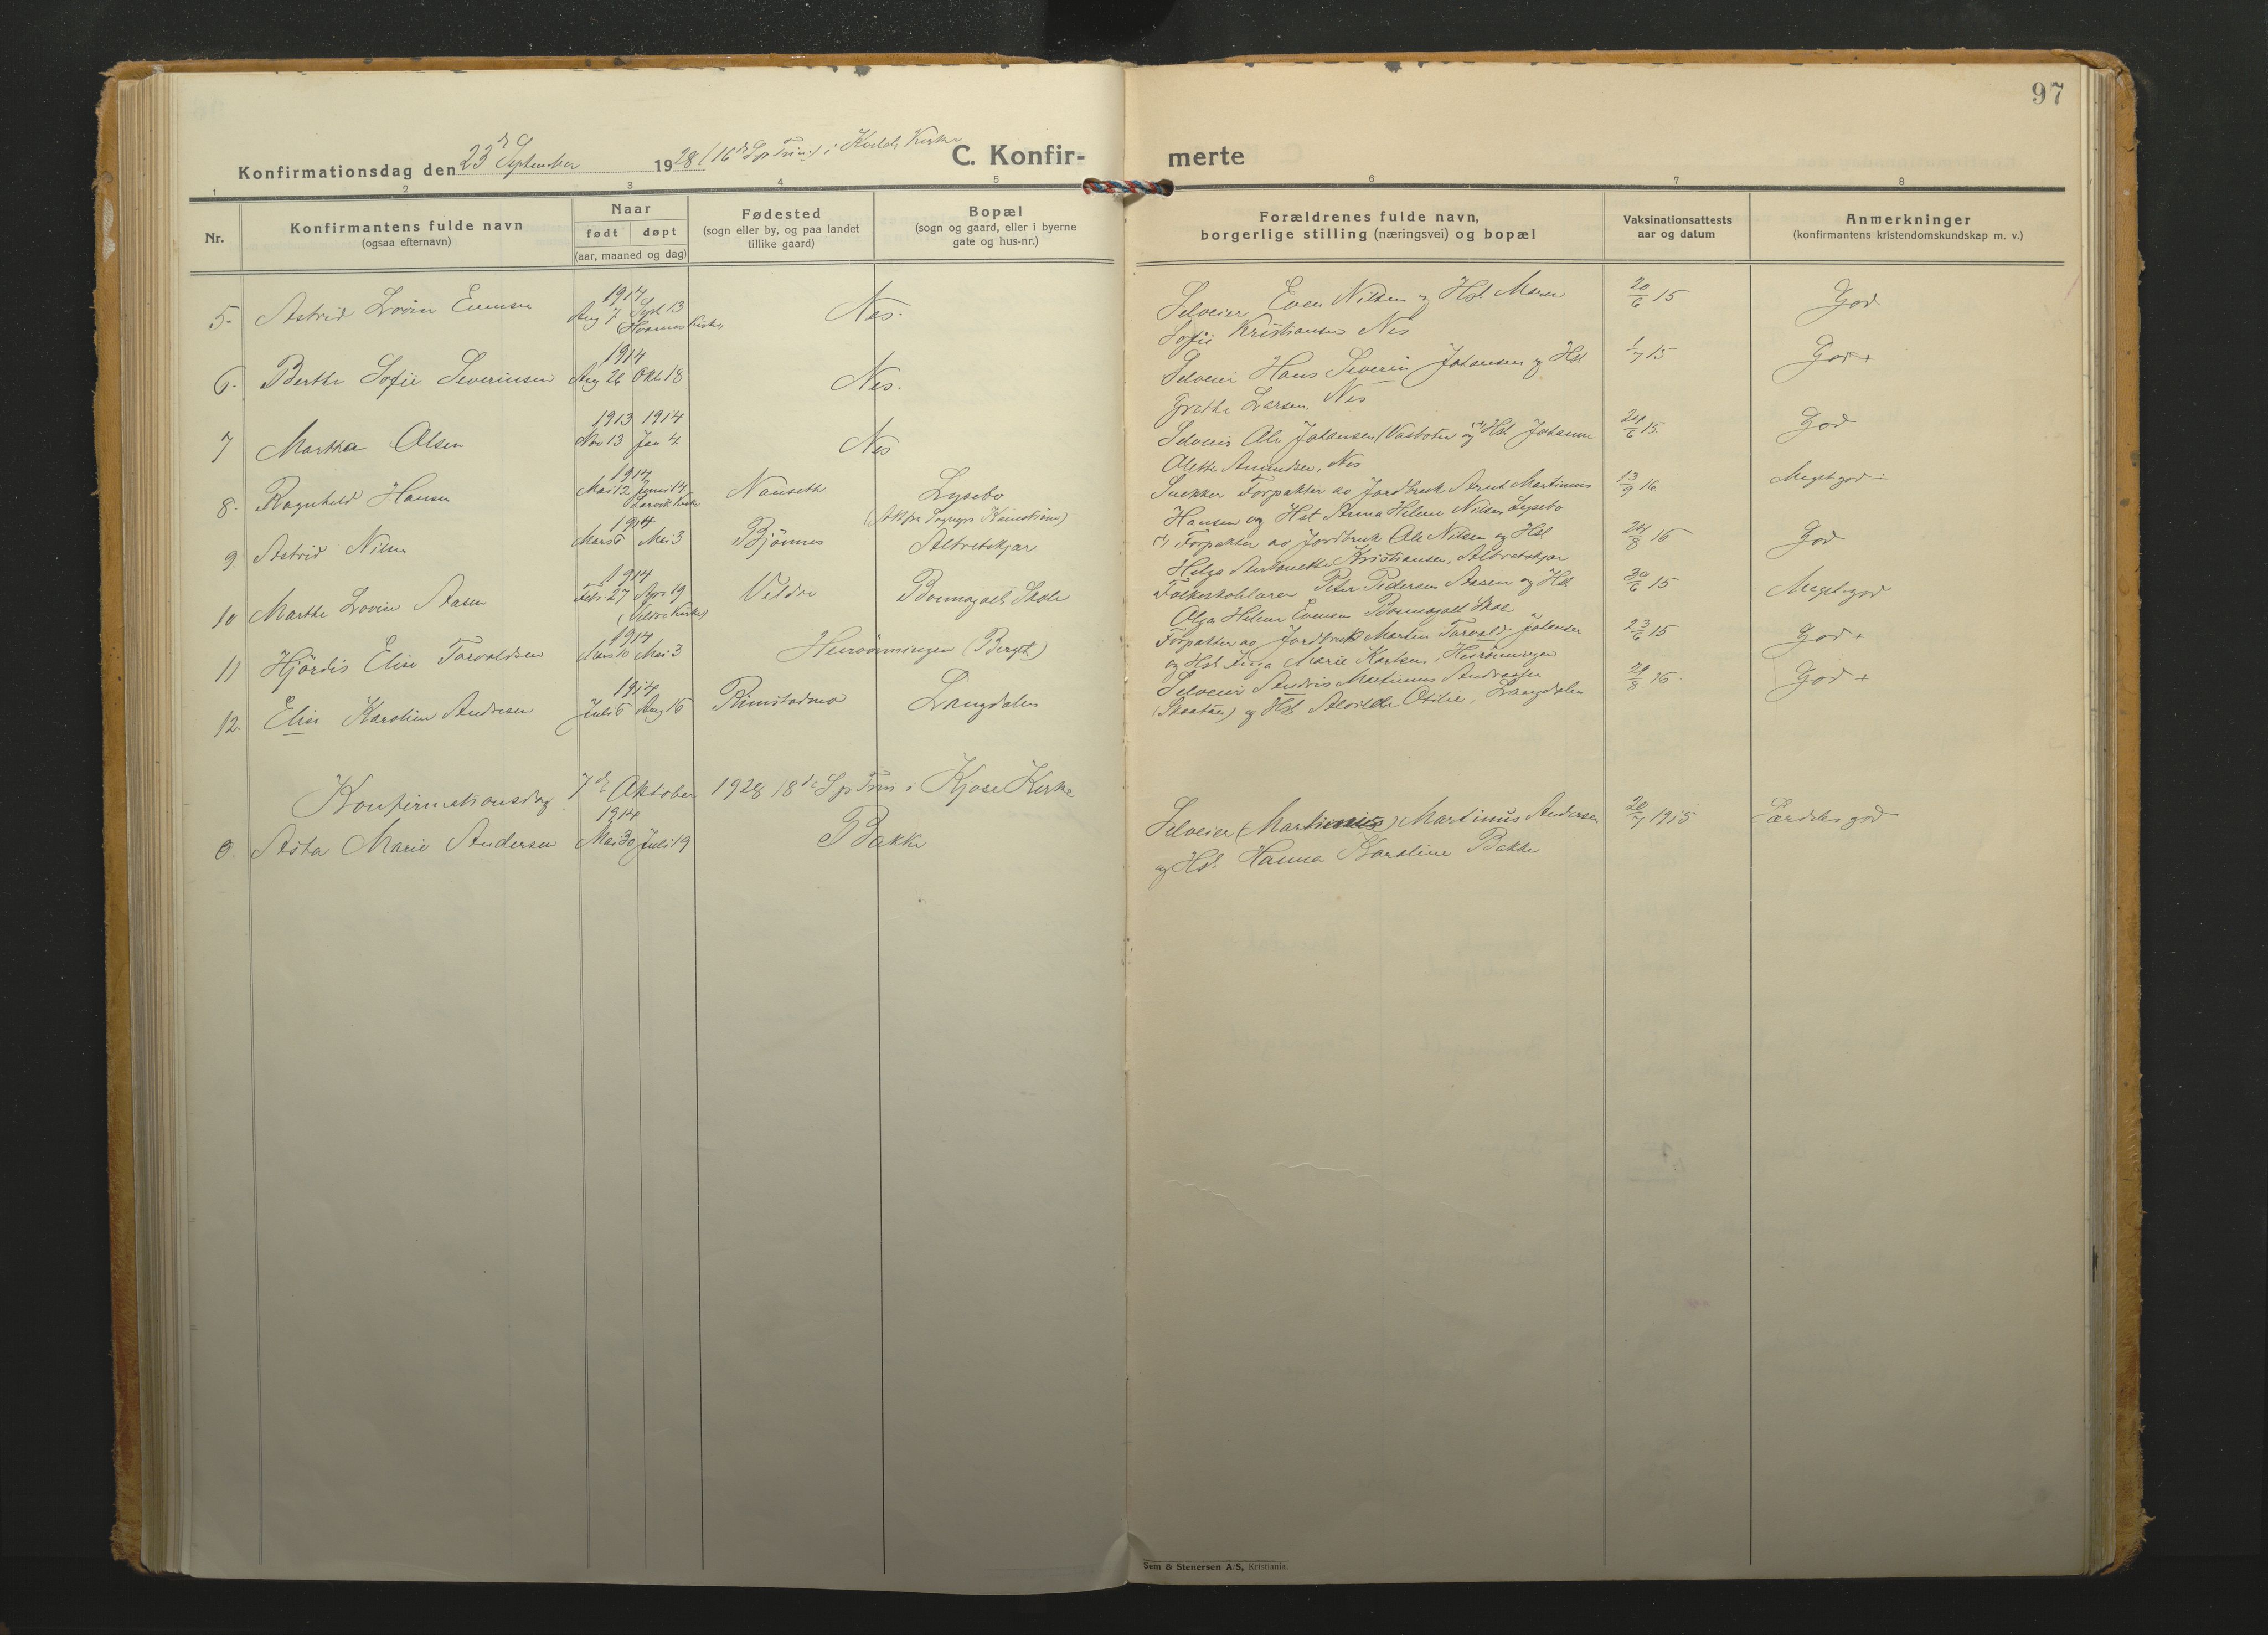 97
Konfirmationsdag den 23d September 1928 (16d S p Trin.) i Kvelde Kirke
C. Konfir- merte
1 2 3 4 5 6 7 8
Nr.
Konfirmantens fulde navn
(ogsaa efternavn)
Naar
født døpt
(aar, maaned og dag)
Fødested
(sogn eller by, og paa landet
tillike gaard)
Bopæl
(sogn og gaard, eller i byerne
gate og hus-nr.)
Forældrenes fulde navn,
borgerlige stilling (næringsvei) og bopæl
Vaksinationsattests
aar og datum
Anmerkninger
(konfirmantens kristendomskundskap m. v.)
1914
5. Astrid Lovise Evensen Aug 7 Sept 13 Nes. Selveier Even Nilsen og Hst Maren 20/6 15 God
Hvarnes Kirke
Sofie Kristiansen Nes
1914
6. Berthe Sofie Severinsen Aug 26 Okt 18 Nes. Selveier Hans Severin Johansen og Hst 1/7 15 God +
Grethe Larsen. Nes
1913 1914
7 Martha Olsen Nov 13 Jan 4 Nes Selveier Ole Johansen (Vasbotn) og Hst Johanne 24/6 15 God
Alette Amundsen, Nes
1914
8. Ragnhild Hansen Mai 12 Juni 14 Nanseth Lysebo Snekker Forpakter av Jordbruk Arnt Martinius 13/9 16 Meget god -
Larvik Kirke
Hansen og Hst Anna Helene Nilsen Lysebo
1914
9. Astrid Nilsen Mars 6 Mai 3 Bjönnes Albretskjær Forpakter av Jordbruk Ole Nilsen og Hst 24/8 16 God
Helga Antonette Kristiansen, Albretskjær
1914
10 Marthe Lovise Aasen Febr 27 Apr 19 Veldre Bommagatt Skole Folkeskolelærer Peter Pedersen Aasen og Hst 30/6 15 Meget god
(Veldre Kirke)
Olga Helene Evensen Bommagatt Skole
1914
11 Hjördis Elise Torvaldsen Mars 10 Mai 3 Heirönningen (Bergt) Forpakter av Jordbruk Martin Torvald Johansen 23/6 15 God +
og Hst Inga Marie Karlsen, Heirönningen
1914
12. Elise Karoline Andresen Juli 6 Aug 16 Rimstadmo Langdalen Selveier Andris Martinius Andreassen 29/8 16. God +
(Skaatan) og Hst Alvilde Otilie, Langdalen
Konfirmationsdag 7de Oktober 1928 18de S p Trin i Kjose Kirke
1914
Asta Marie Andersen Mai 30 Juli 19 Bakke Selveier Martinius Andersen 20/7 1915 Særdeles god
og Hst Hanna Karoline Bakke
Sem & Stenersen A/S, Kristiania.